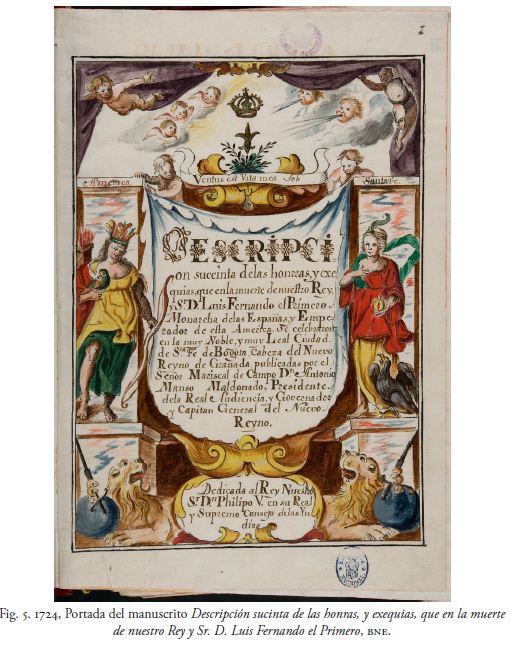 1
Ventus est Vita mea. Job
America.
SantaFe.
DESCRIPCI
on succinta delas honrras, y exe
quias, que en la muerte de nuestro Rey,
y S.r D.n Luis Fernando el Primero,
Monarcha delas Españas, y Empe
rador de esta America. Se celebraron
en la muy Noble, y muy Leal Ciudad
de S.ta Fe de Bogota Cabeza del Nuevo
Reyno de Granada publicadas por el
Señor Mariscal de Campo D.n Antonio
Manso Maldonado, Presidente
dela Real Audiencia, y Governador
y Capitan General del Nuevo
Reyno.
Dedicada al Rey Nuestro
S.r D.n Philipo V. en su Real
y Supremo Consejo delas Yn
dias
Fig. 5. 1724, Portada del manuscrito Descripción sucinta de las honras, y exequias, que en la muerte
de nuestro Rey y Sr. D. Luis Fernando el Primero, BNE.